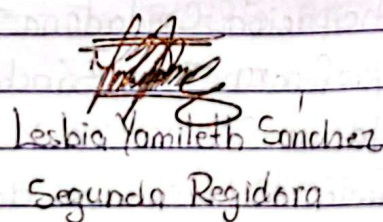 Lesbia Yamileth Sánchez
Segunda Regidora